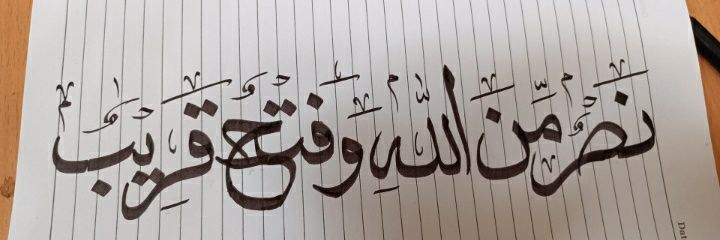 نَصْرٌ مِّنَ اللَّهِ وَفَتْحٌ قَرِيبٌ
Dat